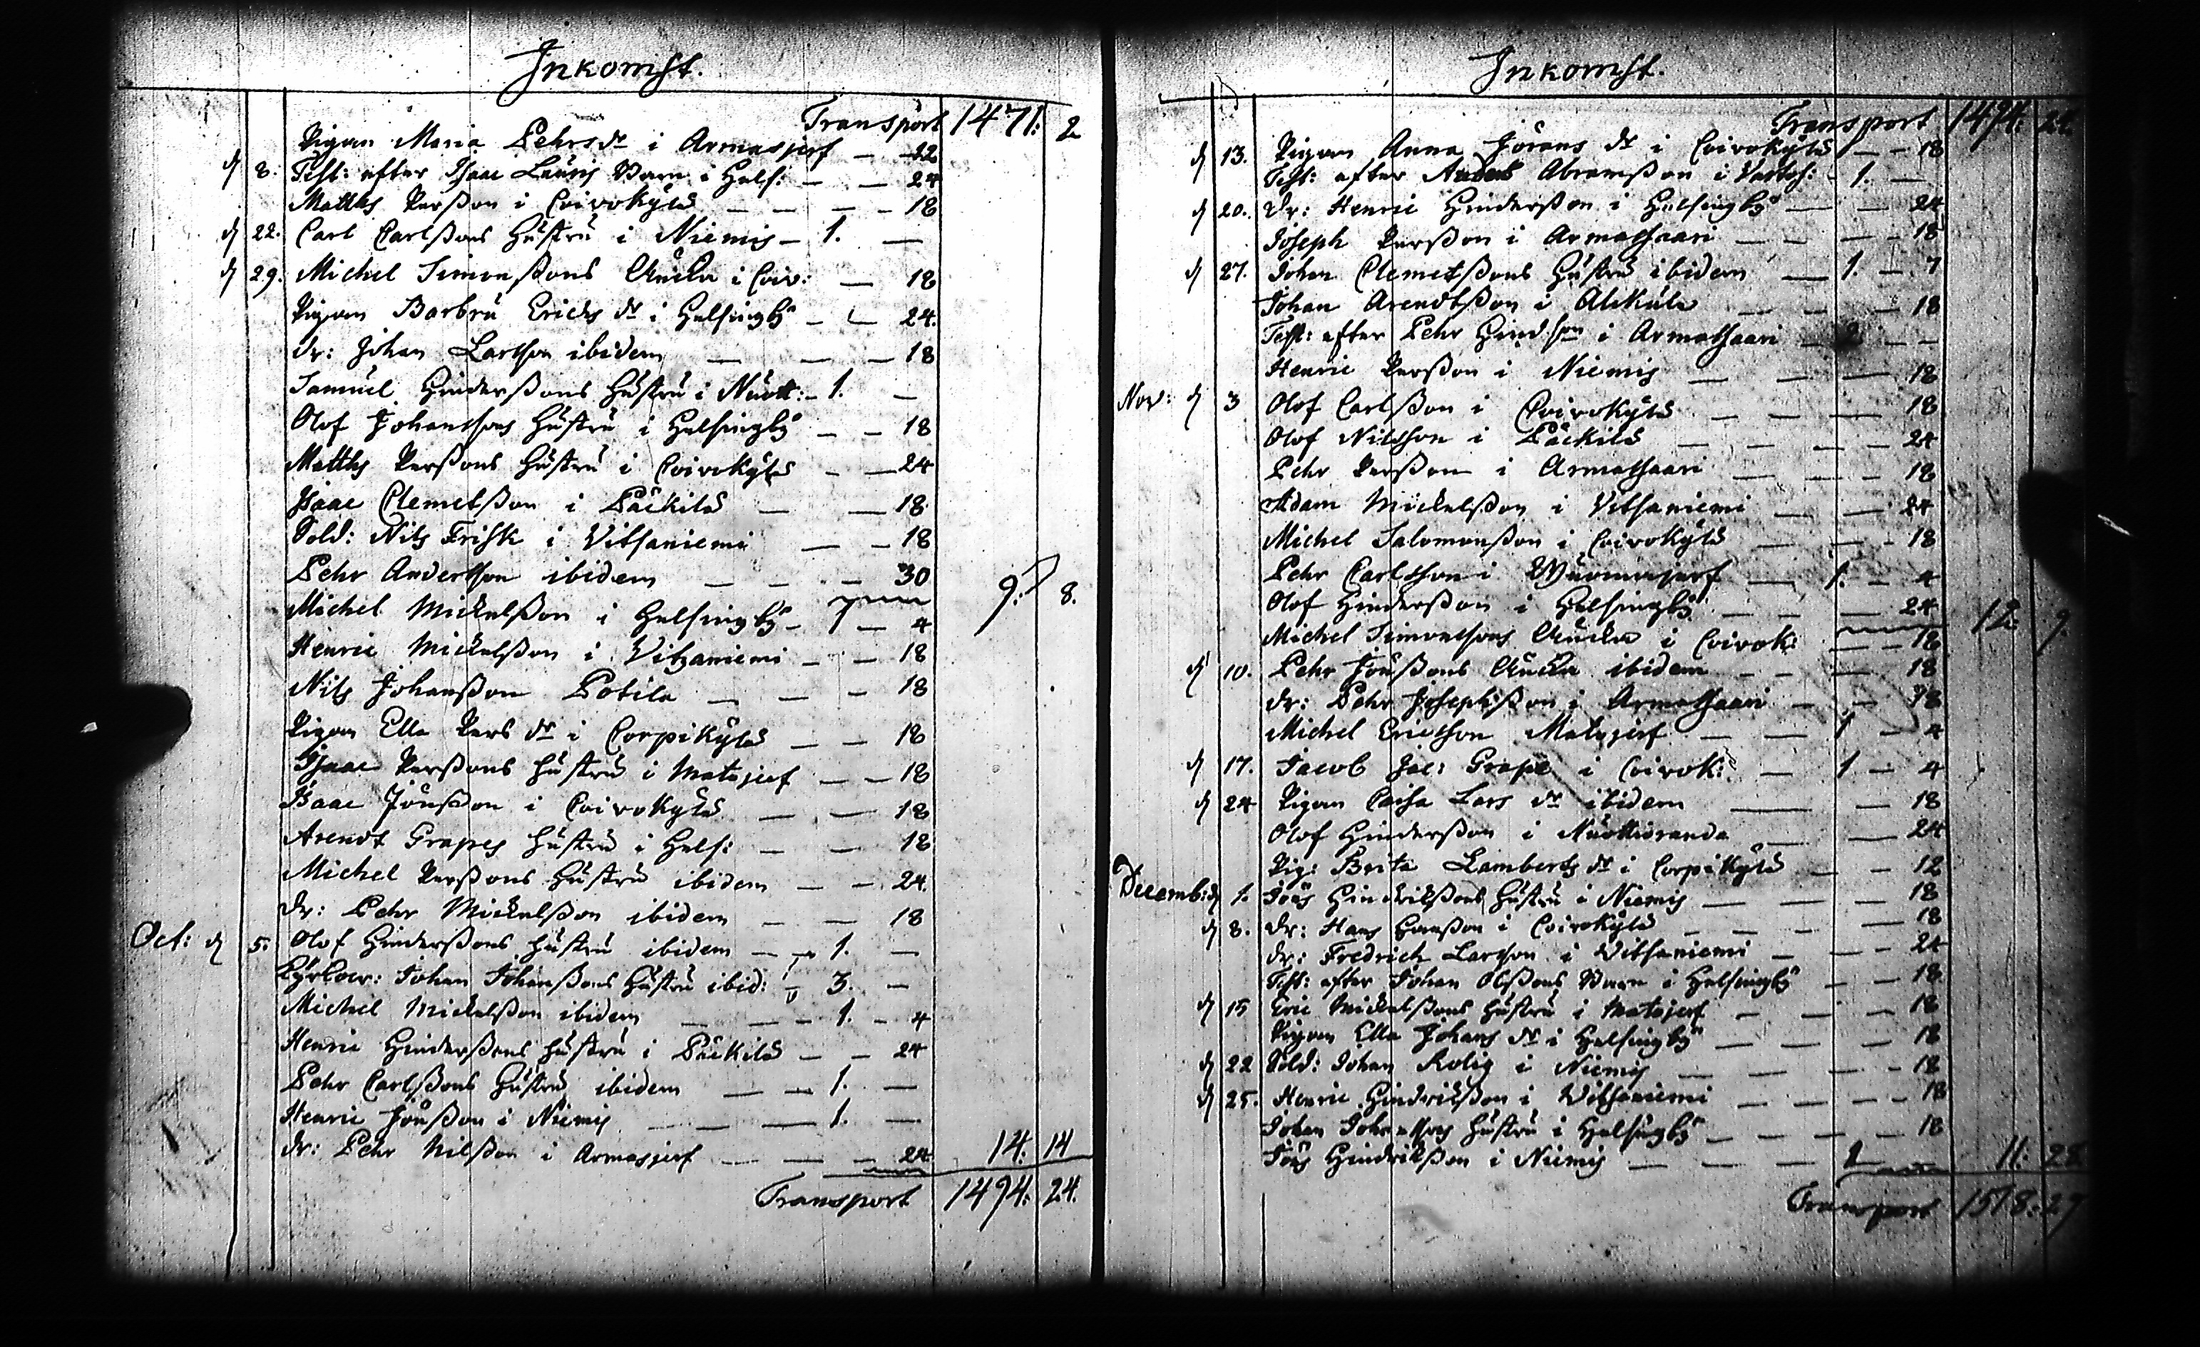 Inkomst.
Transport 1471: 2
Pigan Maria Pehrs dr i Armasjerf — 22
d 8. Test: efter Isaac Lauris Barn i Helf: — — 24
Matths Persson i Coivokylä — — — 18
d 22. Carl Carlssons hustru i Niemis — 1. —
d 29. Michel Simonssons Änka i Coiv: — 18
Pigan Barbru Erichs dr i Helsingby — — 24.
dr: Johan Larsson ibidem — — — 18
Samuel Hinderssons hustru i Nuott: — 1. —
Olof Johanssons hustru i Helsingby — — 18
Matths Perssons hustru i Coivokylä — — 24
Isaac Clemetsson i Päckilä — — 18
Sold: Nils Frisk i Vitsaniemi — — 18
Pehr Andersson ibidem — — — 30 9: 8.
Michel Mickelsson i Helsingby — 1 — 4
Henric Mickelsson i Vitsaniemi — — 18
Nils Johansson Potila — — — 18
Pigan Ella Pers dr i Corpikylä — — 18
Isaac Perssons hustru i Matojerf — — 18
Isaac Jönsson i Coivokylä — — 18
Arendt Grapes hustru i Helf: — — 18
Michel Perssons hustru ibidem — — 24.
dr: Pehr Mickelsson ibidem — — 18
Oct: d 5. Olof Hinderssons hustru ibidem — 1. —
Johan Johanssons hustru ibid: — 3. —
Michel Mickelsson ibidem — — 1. — 4
Henric Hinderssons hustru i Päckilä — — 24
Pehr Carlssons hustru ibidem — — 1. —
Henric Jönsson i Niemis — — — 1. —
dr: Pehr Nilsson i Armasjerf — — — 24 14: 14
Transport 1494: 24.
Inkomst.
Transport 1494: 24.
d 13. Pigan Anna Jörans dr i Coivokylä — — 18
Test: efter Anders Abramsson i — 1. —
d 20. dr: Henric Hindersson i Helsingby — — 24
Joseph Persson i Armassaari — — — 18
d 27. Johan Clemetssons hustru ibidem — 1. — 7
Johan Arendtsson i Alkula — — — 18
Test: efter Pehr Hindsson i Armassaari — 2 — —
Henric Persson i Niemis — — — 18
Nov: d 3 Olof Carlsson i Coivokylä — — — 18
Olof Nilsson i Päckilä — — — 24
Pehr Persson i Armassaari — — — 18
Adam Mickelsson i Vitsaniemi — — 24
Michel Salomonsson i Coivokylä — — 18
Pehr Carlsson i — 1. — 4
Olof Hindersson i Helsingby — — 24 12: 9.
Michel Simonssons Änka i Coivok: — — 18
d 10. Pehr Jönssons Änka ibidem — — — 18
dr: Pehr Josephsson i Armassaari — — 18
Michel Ericsson Matojerf — — 1 — 4
d 17. Jacob Jac: Grape i Coivok: — 1 — 4
d 24 Pigan Caisa Lars dr ibidem — — — 18
Olof Hindersson i Nuottioranda — — 24
Pig: Brita Lamberts dr i Corpikylä — — 12
Decemb: d 1. Jöns Hindrikssons hustru i Niemis — — — 18
d 8. dr: Hans Hansson i Coivokylä — — — 18
dr: Fredrich Larsson i Vitsaniemi — — 24
Test: efter Johan Olssons Barn i Helsingby — — 18
d 15 Eric Mickelssons hustru i Matojerf — — — 18
Pigan Ella Johans dr i Helsingby — — — 18
d 22 Sold: Johan Rolig i Niemis — — — 18
d 25. Henric Hindriksson i Vitsaniemi — — — 18
Johan Johanssons hustru i Helsingby — — — 18
Jöns Hindriksson i Niemis — — — 1 — 11: 28
Transport 1518: 27